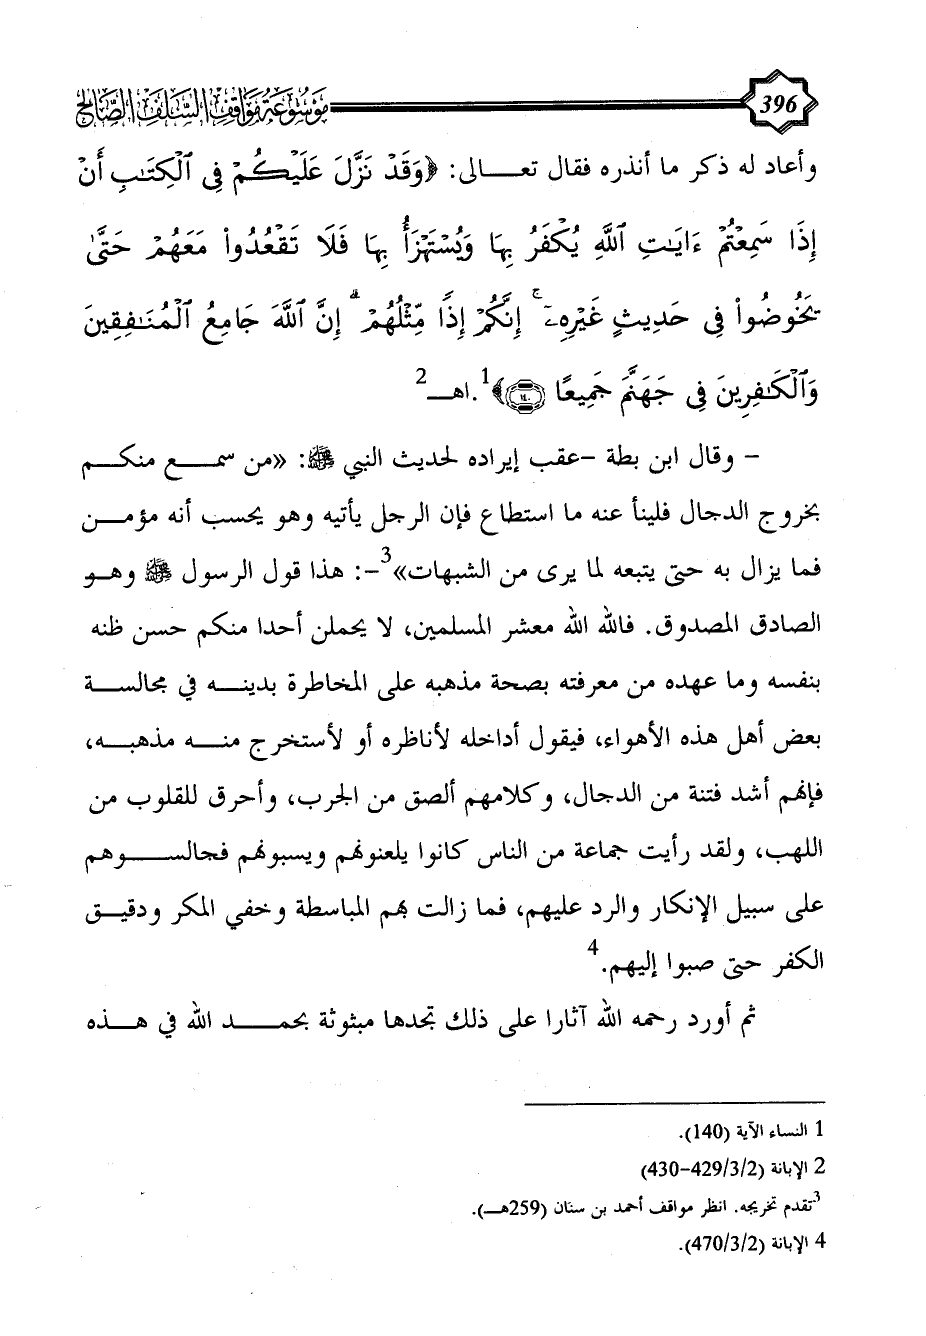 396 موسوعة مواقف السلف الصالح
وأعاد له ذكر ما أنذره فقال تعـــالى: ﴿وَقَدْ نَزَّلَ عَلَيْكُمْ فِي ٱلْكِتَٰبِ أَنْ
إِذَا سَمِعْتُمْ ءَايَٰتِ ٱللَّهِ يُكْفَرُ بِهَا وَيُسْتَهْزَأُ بِهَا فَلَا تَقْعُدُواْ مَعَهُمْ حَتَّىٰ
يَخُوضُواْ فِي حَدِيثٍ غَيْرِهِۦٓ ۚ إِنَّكُمْ إِذًا مِّثْلُهُمْ ۗ إِنَّ ٱللَّهَ جَامِعُ ٱلْمُنَٰفِقِينَ
وَٱلْكَٰفِرِينَ فِي جَهَنَّمَ جَمِيعًا ١٤٠﴾1.اهـ2
- وقال ابن بطة -عقب إيراده لحديث النبي ﷺ: «من سمع منكم
بخروج الدجال فلينأ عنه ما استطاع فإن الرجل يأتيه وهو يحسب أنه مؤمن
فما يزال به حتى يتبعه لما يرى من الشبهات»3-: هذا قول الرسول ﷺ وهو
الصادق المصدوق. فالله الله معشر المسلمين، لا يحملن أحدا منكم حسن ظنه
بنفسه وما عهده من معرفته بصحة مذهبه على المخاطرة بدينه في مجالسة
بعض أهل هذه الأهواء، فيقول أداخله لأناظره أو لأستخرج منه مذهبه،
فإنهم أشد فتنة من الدجال، وكلامهم ألصق من الجرب، وأحرق للقلوب من
اللهب، ولقد رأيت جماعة من الناس كانوا يلعنونهم ويسبونهم فجالسوهم
على سبيل الإنكار والرد عليهم، فما زالت بهم المباسطة وخفي المكر ودقيق
الكفر حتى صبوا إليهم.4
ثم أورد رحمه الله آثارا على ذلك تجدها مبثوثة بحمد الله في هذه
1 النساء الآية (140).
2 الإبانة (2/3/429-430)
3 تقدم تخريجه. انظر مواقف أحمد بن سنان (259هـ).
4 الإبانة (2/3/470).